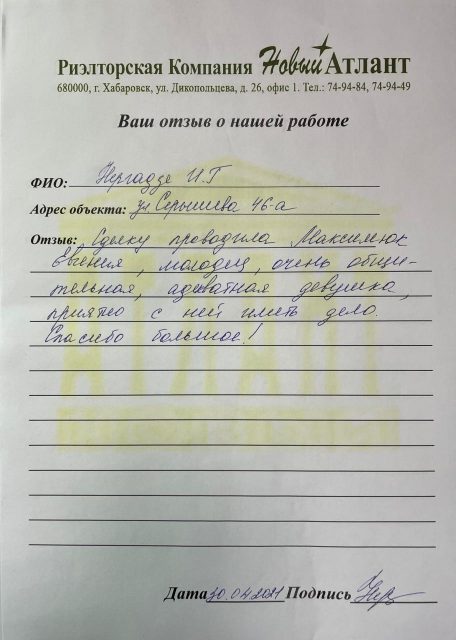 Риэлторская Компания Новый Атлант
680000, г. Хабаровск, ул. Дикопольцева, д. 26, офис 1. Тел.: 74-94-84, 74-94-49
Ваш отзыв о нашей работе
ФИО: Нергадзе И.Г
Адрес объекта: ул. Серышева 46-а
Отзыв: Сделку проводила Максимюк
Евгения, молодец, очень общи-
тельная, адекватная девушка,
приятно с ней иметь дело.
Спасибо большое!
АТЛАНТ
Дата 30.04.2021 Подпись